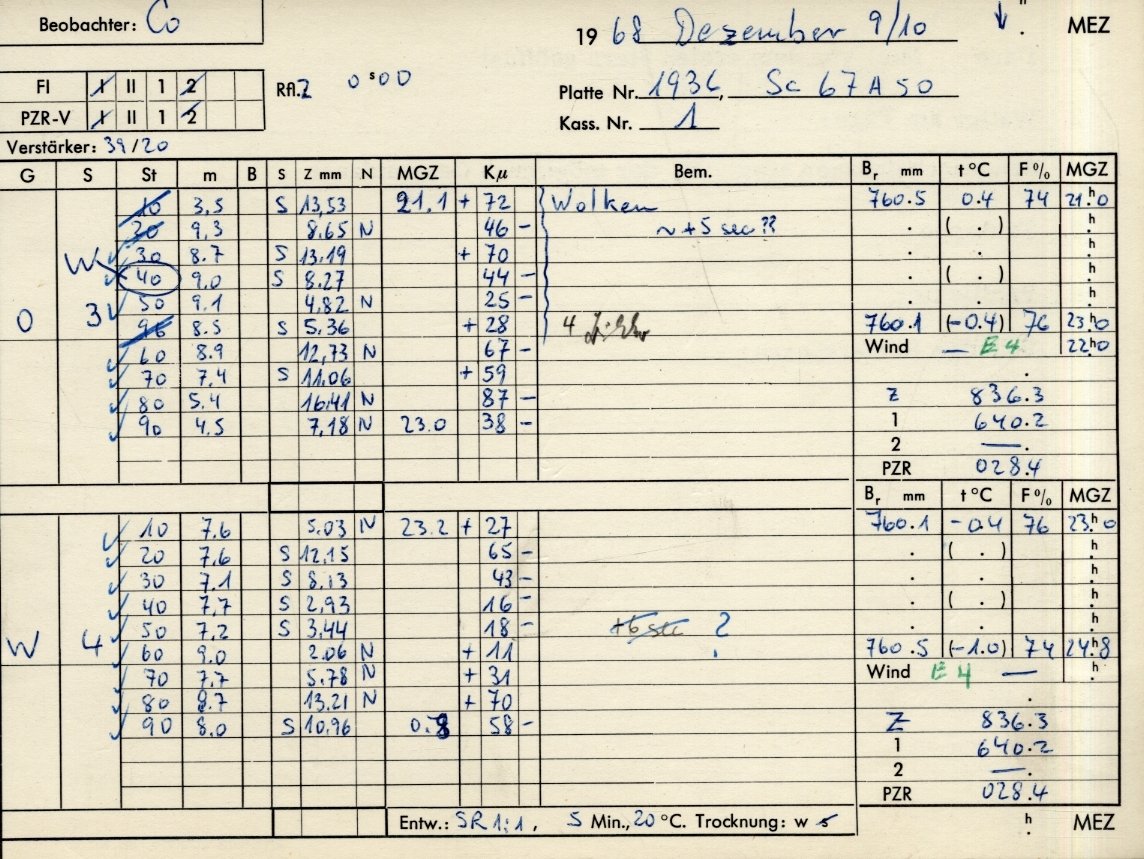 Beobachter: Co
19 68 Dezember 9/10 MEZ
FI I II 1 2
RA.Z 0ˢ00
Platte Nr. 1936, Sc 67 A 50
PZR-V I II 1 2
Kass. Nr. 1
Verstärker: 39/20
G S St m B S Z mm N MGZ Kμ Bem. Br mm t °C F % MGZ
10 3,5 S 13,53 21.1 + 72 Wolken 760.5 0.4 74 21.ʰ0
20 9,3 8,65 N 46 - ~ +5 sec ?? . ( . ) h
W 30 8.7 S 13,19 + 70 . . h
40 9,0 S 8,27 44 - . ( . ) h
50 9.1 4,82 N 25 - . . h
O 3 96 8.5 S 5,36 + 28 4 760.1 (-0.4) 76 23.ʰ0
60 8.9 12,73 N 67 - Wind — E 4 22.ʰ0
70 7,4 S 11,06 + 59
80 5.4 16,41 N 87 - Z 836.3
90 4.5 7,18 N 23.0 38 - 1 640.2
2 —.
PZR 028.4
Br mm t °C F % MGZ
10 7.6 5,03 N 23.2 + 27 760.1 -0.4 76 23.ʰ0
20 7.6 S 12,15 65 - . ( . ) h
30 7.1 S 8,13 43 - . . h
40 7,7 S 2,93 16 - . ( . ) h
50 7,2 S 3,44 18 - +6 sec ? . . h
W 4 60 9.0 2,06 N + 11 760.5 (-1.0) 74 24.ʰ8
70 7,7 5,78 N + 31 Wind E 4 — h
80 8.7 13,21 N + 70
90 8,0 S 10,96 0.8 58 - Z 836.3
1 640.2
2 —.
PZR 028.4
Entw.: SR 1:1, 5 Min., 20 °C. Trocknung: w h MEZ